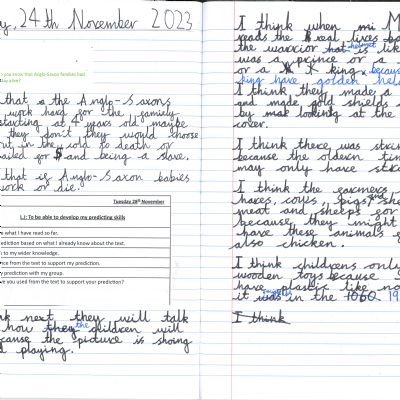 y, 24th November 2023
o you know that Anglo-Saxon families had
that is the Anglo-Saxons
work hard for the family
starting at 5 years old maybe
they don't they would choose
out in the cold to death or
for and being a slave.
that is Anglo-Saxon babies
work or die.
Tuesday 28th November
L.I: To be able to develop my predicting skills
what I have read so far.
prediction based on what I already know about the text.
to my wider knowledge.
nce from the text to support my prediction.
y prediction with my group.
ve you used from the text to support your prediction?
nk next they will talk
how they the children will
cause the picture is shoing
playing.
I think when mi M
reads the real lives
the warrior hat is like helmet
was a prince or a
or a king because
king have golden hel
I think they made a
and made gold shields
by mak looking at the
cover.
I think there was
because the oldern tim
may only have
I think the farmers
hares, cows, pigs, and
meat and sheeps for
because they might
have these animals
also chicken.
I think childrens only
wooden toys because
have plastic like no
it was in the 1060 19
I think